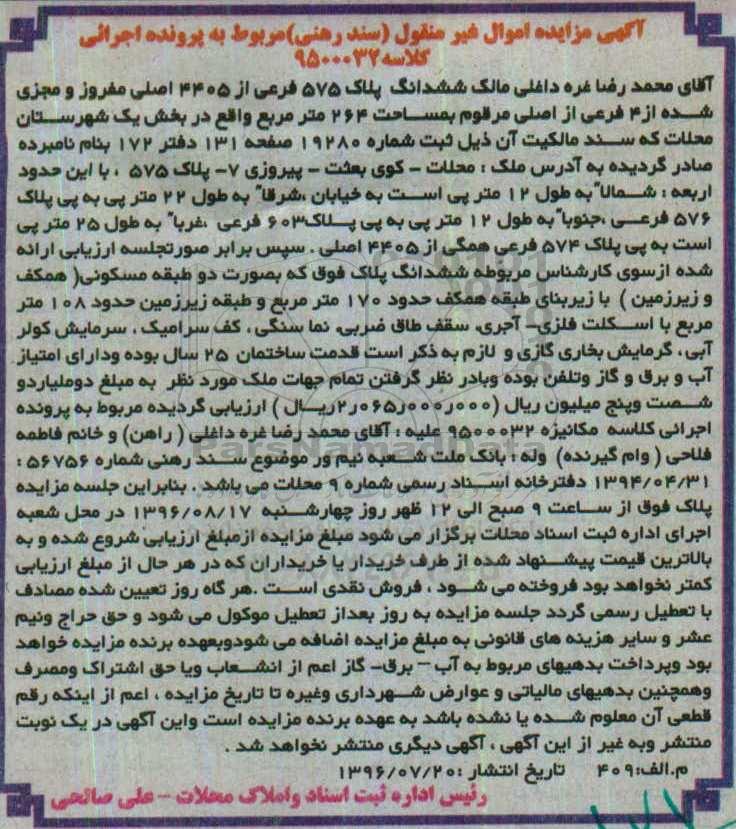 آگهی مزایده اموال غیر منقول (سند رهنی)مربوط به پرونده اجرائی
کلاسه۹۵۰۰۰۳۲
آقای محمد رضا غره داغلی مالک ششدانگ پلاک ۵۷۵ فرعی از ۴۴۰۵ اصلی مفروز و مجزی
شده از۴ فرعی از اصلی مرقوم بمساحت ۲۶۴ متر مربع واقع در بخش یک شهرستان
محلات که سند مالکیت آن ذیل ثبت شماره ۱۹۲۸۰ صفحه ۱۳۱ دفتر ۱۷۲ بنام نامبرده
صادر گردیده به آدرس ملک : محلات - کوی بعثت - پیروزی ۷- پلاک ۵۷۵ ، با این حدود
اربعه : شمالا" به طول ۱۲ متر پی است به خیابان ،شرقا" به طول ۲۲ متر پی به پی پلاک
۵۷۶ فرعی ،جنوبا" به طول ۱۲ متر پی به پی پلاک۶۰۳ فرعی ،غربا" به طول ۲۵ متر پی
است به پی پلاک ۵۷۴ فرعی همگی از ۴۴۰۵ اصلی . سپس برابر صورتجلسه ارزیابی ارائه
شده ازسوی کارشناس مربوطه ششدانگ پلاک فوق که بصورت دو طبقه مسکونی( همکف
و زیرزمین ) با زیربنای طبقه همکف حدود ۱۷۰ متر مربع و طبقه زیرزمین حدود ۱۰۸ متر
مربع با اسکلت فلزی- آجری، سقف طاق ضربی، نما سنگی ، کف سرامیک ، سرمایش کولر
آبی ، گرمایش بخاری گازی و لازم به ذکر است قدمت ساختمان ۲۵ سال بوده ودارای امتیاز
آب و برق و گاز وتلفن بوده وبادر نظر گرفتن تمام جهات ملک مورد نظر به مبلغ دوملیاردو
شصت وپنج میلیون ریال (۲٫۰۶۵٫۰۰۰٫۰۰۰ریال ) ارزیابی گردیده مربوط به پرونده
اجرائی کلاسه مکانیزه ۹۵۰۰۰۳۲ علیه : آقای محمد رضا غره داغلی ( راهن) و خانم فاطمه
فلاحی ( وام گیرنده) وله : بانک ملت شعبه نیم ور موضوع سند رهنی شماره ۵۶۷۵۶ :
۱۳۹۴/۰۴/۳۱ دفترخانه اسناد رسمی شماره ۹ محلات می باشد . بنابراین جلسه مزایده
پلاک فوق از ساعت ۹ صبح الی ۱۲ ظهر روز چهارشنبه ۱۳۹۶/۰۸/۱۷ در محل شعبه
اجرای اداره ثبت اسناد محلات برگزار می شود مبلغ مزایده ازمبلغ ارزیابی شروع شده و به
بالاترین قیمت پیشنهاد شده از طرف خریدار یا خریداران که در هر حال از مبلغ ارزیابی
کمتر نخواهد بود فروخته می شود ، فروش نقدی است .هر گاه روز تعیین شده مصادف
با تعطیل رسمی گردد جلسه مزایده به روز بعداز تعطیل موکول می شود و حق حراج ونیم
عشر و سایر هزینه های قانونی به مبلغ مزایده اضافه می شودوبعهده برنده مزایده خواهد
بود وپرداخت بدهیهای مربوط به آب - برق- گاز اعم از انشعاب ویا حق اشتراک ومصرف
وهمچنین بدهیهای مالیاتی و عوارض شهرداری وغیره تا تاریخ مزایده ، اعم از اینکه رقم
قطعی آن معلوم شده یا نشده باشد به عهده برنده مزایده است واین آگهی در یک نوبت
منتشر وبه غیر از این آگهی ، آگهی دیگری منتشر نخواهد شد .
م.الف:۴۰۹ تاریخ انتشار :۱۳۹۶/۰۷/۲۰
رئیس اداره ثبت اسناد واملاک محلات - علی صالحی